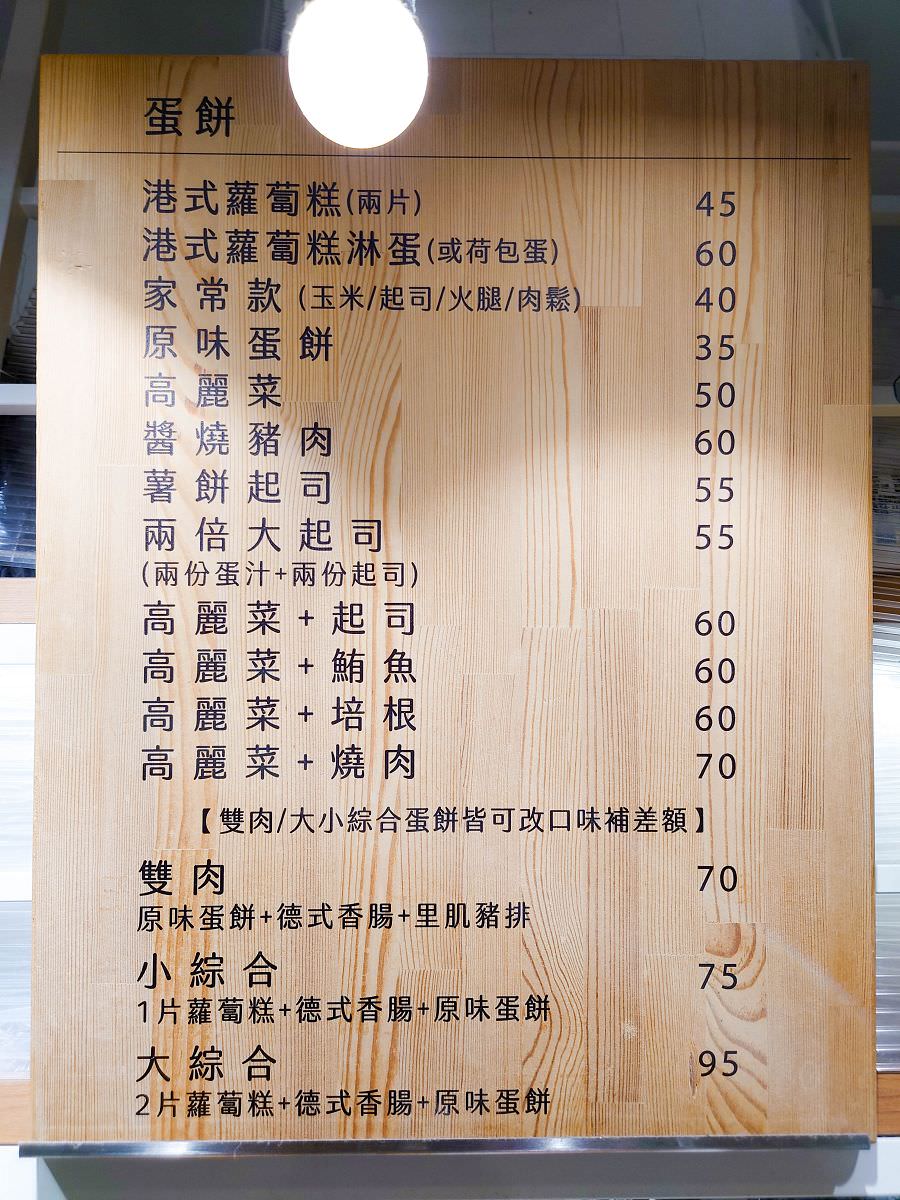 蛋餅
港式蘿蔔糕(兩片) 45
港式蘿蔔糕淋蛋(或荷包蛋) 60
家常款 (玉米/起司/火腿/肉鬆) 40
原味蛋餅 35
高麗菜 50
醬燒豬肉 60
薯餅起司 55
兩倍大起司 55
(兩份蛋汁+兩份起司)
高麗菜+起司 60
高麗菜+鮪魚 60
高麗菜+培根 60
高麗菜+燒肉 70
【雙肉/大小綜合蛋餅皆可改口味補差額】
雙肉 70
原味蛋餅+德式香腸+里肌豬排
小綜合 75
1片蘿蔔糕+德式香腸+原味蛋餅
大綜合 95
2片蘿蔔糕+德式香腸+原味蛋餅